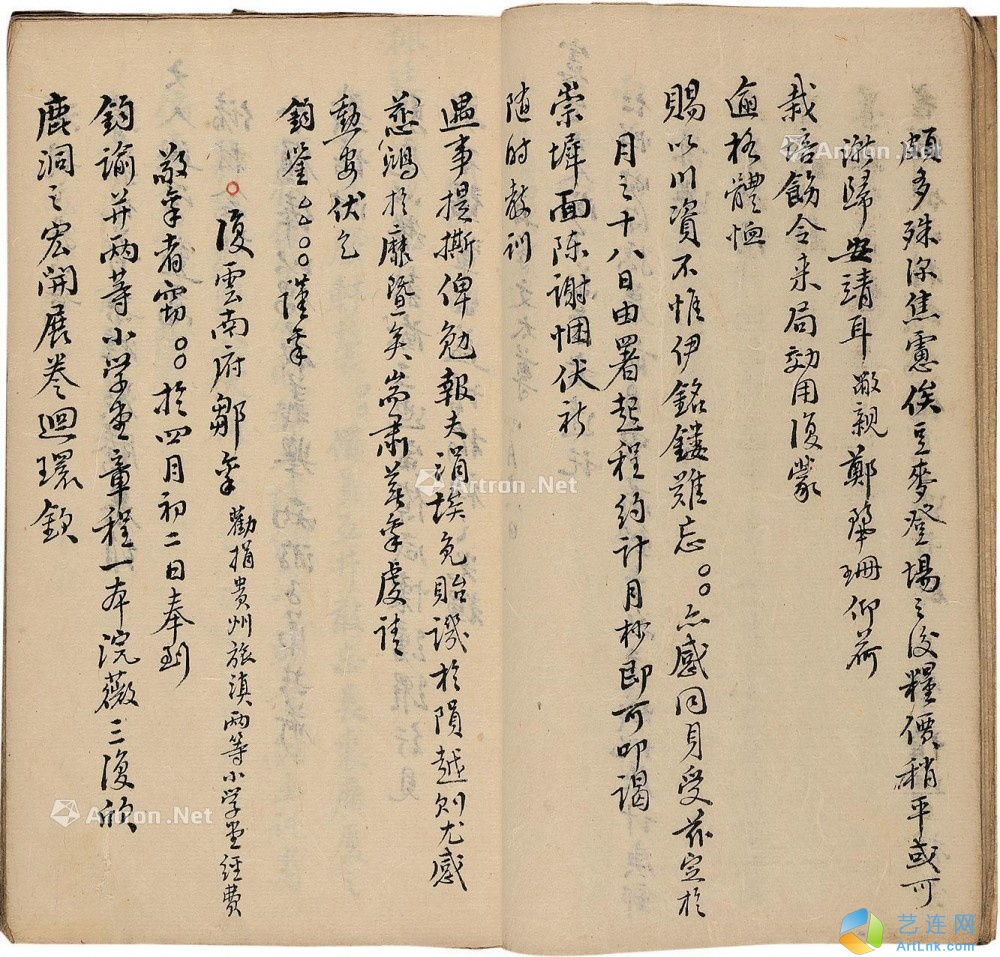 頗多殊深焦慮俟豆麥登場之後糧價稍平或可
漸歸安靖耳敝親鄭華珊仰荷
栽培飭令来局効用復蒙
逾格體恤
賜以川資不惟伊銘鏤難忘〇〇亦感同身受茲定於
月之十八日由署起程約計月杪即可叩謁
崇墀面陳謝悃伏祈
随時教訓
遇事提撕俾勉報夫涓埃免貽譏於隕越則尤感
慈鴻於靡暨矣耑肅菶禀虔請
勤安伏乞
鈞鑒〇〇謹禀
復雲南府鄒禀 勸捐貴州旅滇兩等小学堂經費
敬禀者竊〇〇於四月初二日奉到
鈞諭并兩等小学堂章程一本浣薇三復欣
鹿洞之宏開展卷迴環欽
Artron.Net
Artron.Net
Artron.Net
艺连网
ArtLnk.com